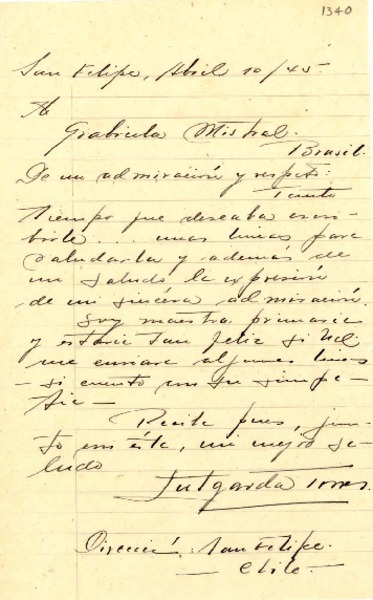 1340
San Felipe, Abril 10/45.
A
Grabiela Mistral.
Brasil.
De mi admiración y respeto:
Tanto
tiempo que deseaba escri-
birle... unas líneas para
saludarla y además de
un saludo la expresión
de mi sincera admiración.
Soy maestra primaria
y estaría tan feliz si Ud.
me enviara algunas líneas
- si cuento con su simpa-
tía -
Reciba pues, jun-
to con ésta, mi mejor sa-
ludo
Lutgarda Torres.
Dirección: San Felipe.
- Chile -